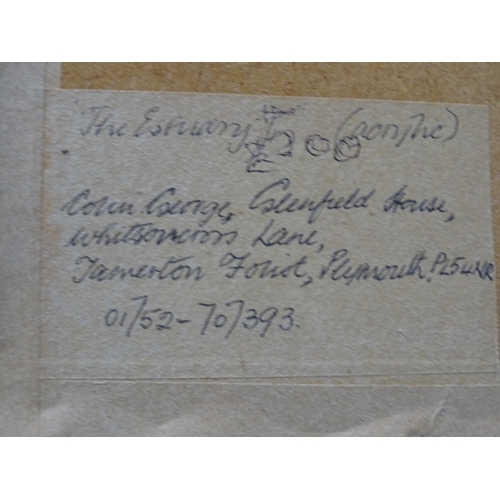 The Estuary £200 (acrylic)
Colin George, Glenfield House,
Whitsoncross Lane,
Tamerton Foliot, Plymouth, PL5 4NR
01752-707393.